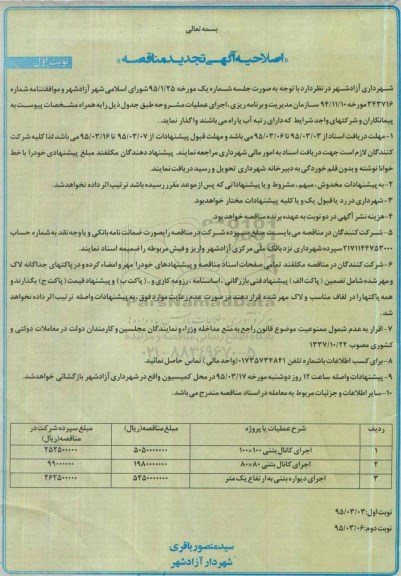 بسمه تعالی
«اصلاحیه آگهی تجدید مناقصه»
نوبت اول
شهرداری آزادشهر در نظر دارد با توجه به صورت جلسه شماره یک مورخه ۹۵/۱/۲۵ شورای اسلامی شهر آزادشهر و موافقتنامه شماره
۲۴۳۷۱۶ مورخه ۹۴/۱۱/۱۰ سازمان مدیریت و برنامه ریزی، اجرای عملیات مشروحه طبق جدول ذیل را به همراه مشخصات پیوست به
پیمانکاران و شرکتهای واجد شرایط که دارای رتبه آب یا راه می باشند واگذار نماید.
۱-مهلت دریافت اسناد از ۹۵/۰۳/۰۳ تا ۹۵/۰۳/۰۶ می باشد و مهلت قبول پیشنهادات از ۹۵/۰۳/۰۷ تا ۹۵/۰۳/۱۶ می باشد لذا کلیه شرکت
کنندگان لازم است جهت دریافت اسناد به امور مالی شهرداری مراجعه نمایند. پیشنهاد دهندگان مکلفند مبلغ پیشنهادی خود را با خط
خوانا نوشته و بدون قلم خوردگی به دبیرخانه شهرداری تحویل و رسید دریافت نمایند.
۲-به پیشنهادات مخدوش، مبهم، مشروط و یا پیشنهاداتی که پس از موعد مقرر رسیده باشد ترتیب اثر داده نخواهدشد.
۳-شهرداری در رد یا قبول یک و یا کلیه پیشنهادات مختار خواهدبود.
۴-هزینه نشر آگهی در دو نوبت به عهده برنده مناقصه خواهد بود.
۵-شرکت کنندگان در مناقصه می بایست مبلغ سپرده شرکت در مناقصه را بصورت ضمانت نامه بانکی و یا وجه نقد به شماره حساب
۲۱۷۱۱۴۴۷۵۳۰۰۰ سپرده شهرداری نزد بانک ملی مرکزی آزادشهر واریز و فیش مربوطه را ضمیمه اسناد نمایند.
۶-شرکت کنندگان در مناقصه مکلفند تمامی صفحات اسناد مناقصه و پیشنهادهای خود را مهر و امضاء کرده و در پاکتهای جداگانه لاک
ومهر شده شامل تضمین (پاکت الف) پیشنهاد فنی بازرگانی، اساسنامه، رزومه کاری و.. (پاکت ب) و پیشنهاد قیمت (پاکت ج) بگذارند و
همه پاکتها را در لفاف مناسب و لاک مهر شده قرار دهند در صورت عدم رعایت موارد فوق، به پیشنهادات واصله ترتیب اثر داده نخواهد
شد.
۷-اقرار به عدم شمول ممنوعیت موضوع قانون راجع به منع مداخله وزراء و نمایندگان مجلسین و کارمندان دولت در معاملات دولتی و
کشوری مصوب ۱۳۳۷/۱۰/۲۲
۸-برای کسب اطلاعات با شماره تلفن ۰۱۷۳۵۷۳۴۸۴۱ (واحد مالی) تماس حاصل نمائید.
۹-پیشنهادات واصله ساعت ۱۲ روز دوشنبه مورخه ۹۵/۰۳/۱۷ در محل کمیسیون واقع در شهرداری آزادشهر بازگشائی خواهدشد.
۱۰-سایر اطلاعات و جزئیات مربوط به معامله در اسناد مناقصه مندرج می باشد.
ردیف شرح عملیات یا پروژه مبلغ مناقصه (ریال) مبلغ سپرده شرکت در مناقصه (ریال)
۱ اجرای کانال بتنی ۱۰۰×۱۰۰ ۵۰۵۰۰۰۰۰۰۰ ۲۵۲۵۰۰۰۰۰
۲ اجرای کانال بتنی ۸۰×۸۰ ۱۹۸۰۰۰۰۰۰۰ ۹۹۰۰۰۰۰۰
۳ اجرای دیواره بتنی به ارتفاع یک متر ۵۲۵۰۰۰۰۰۰۰ ۲۶۲۵۰۰۰۰۰
نوبت اول: ۹۵/۰۳/۰۳
نوبت دوم: ۹۵/۰۳/۰۶
سیدمنصور باقری
شهردار آزادشهر